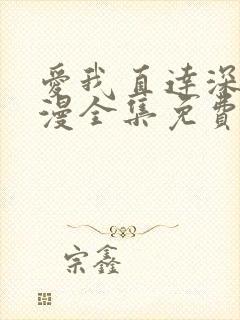 愛我直達深
漫全集免費
宗鑫